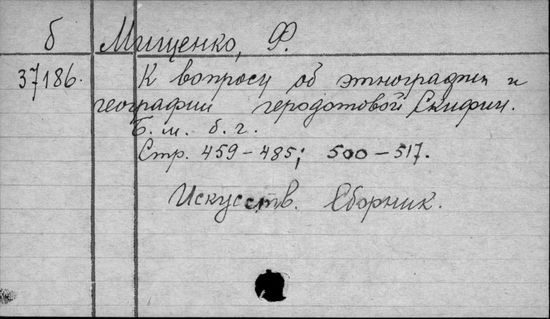 б Мищенко, Ф.
37186. К вопросу об этнографии и
географии геродотовой Скифии.
Б. м. б. г.
Стр. 459-485; 500-517.
Искусств. Сборник.